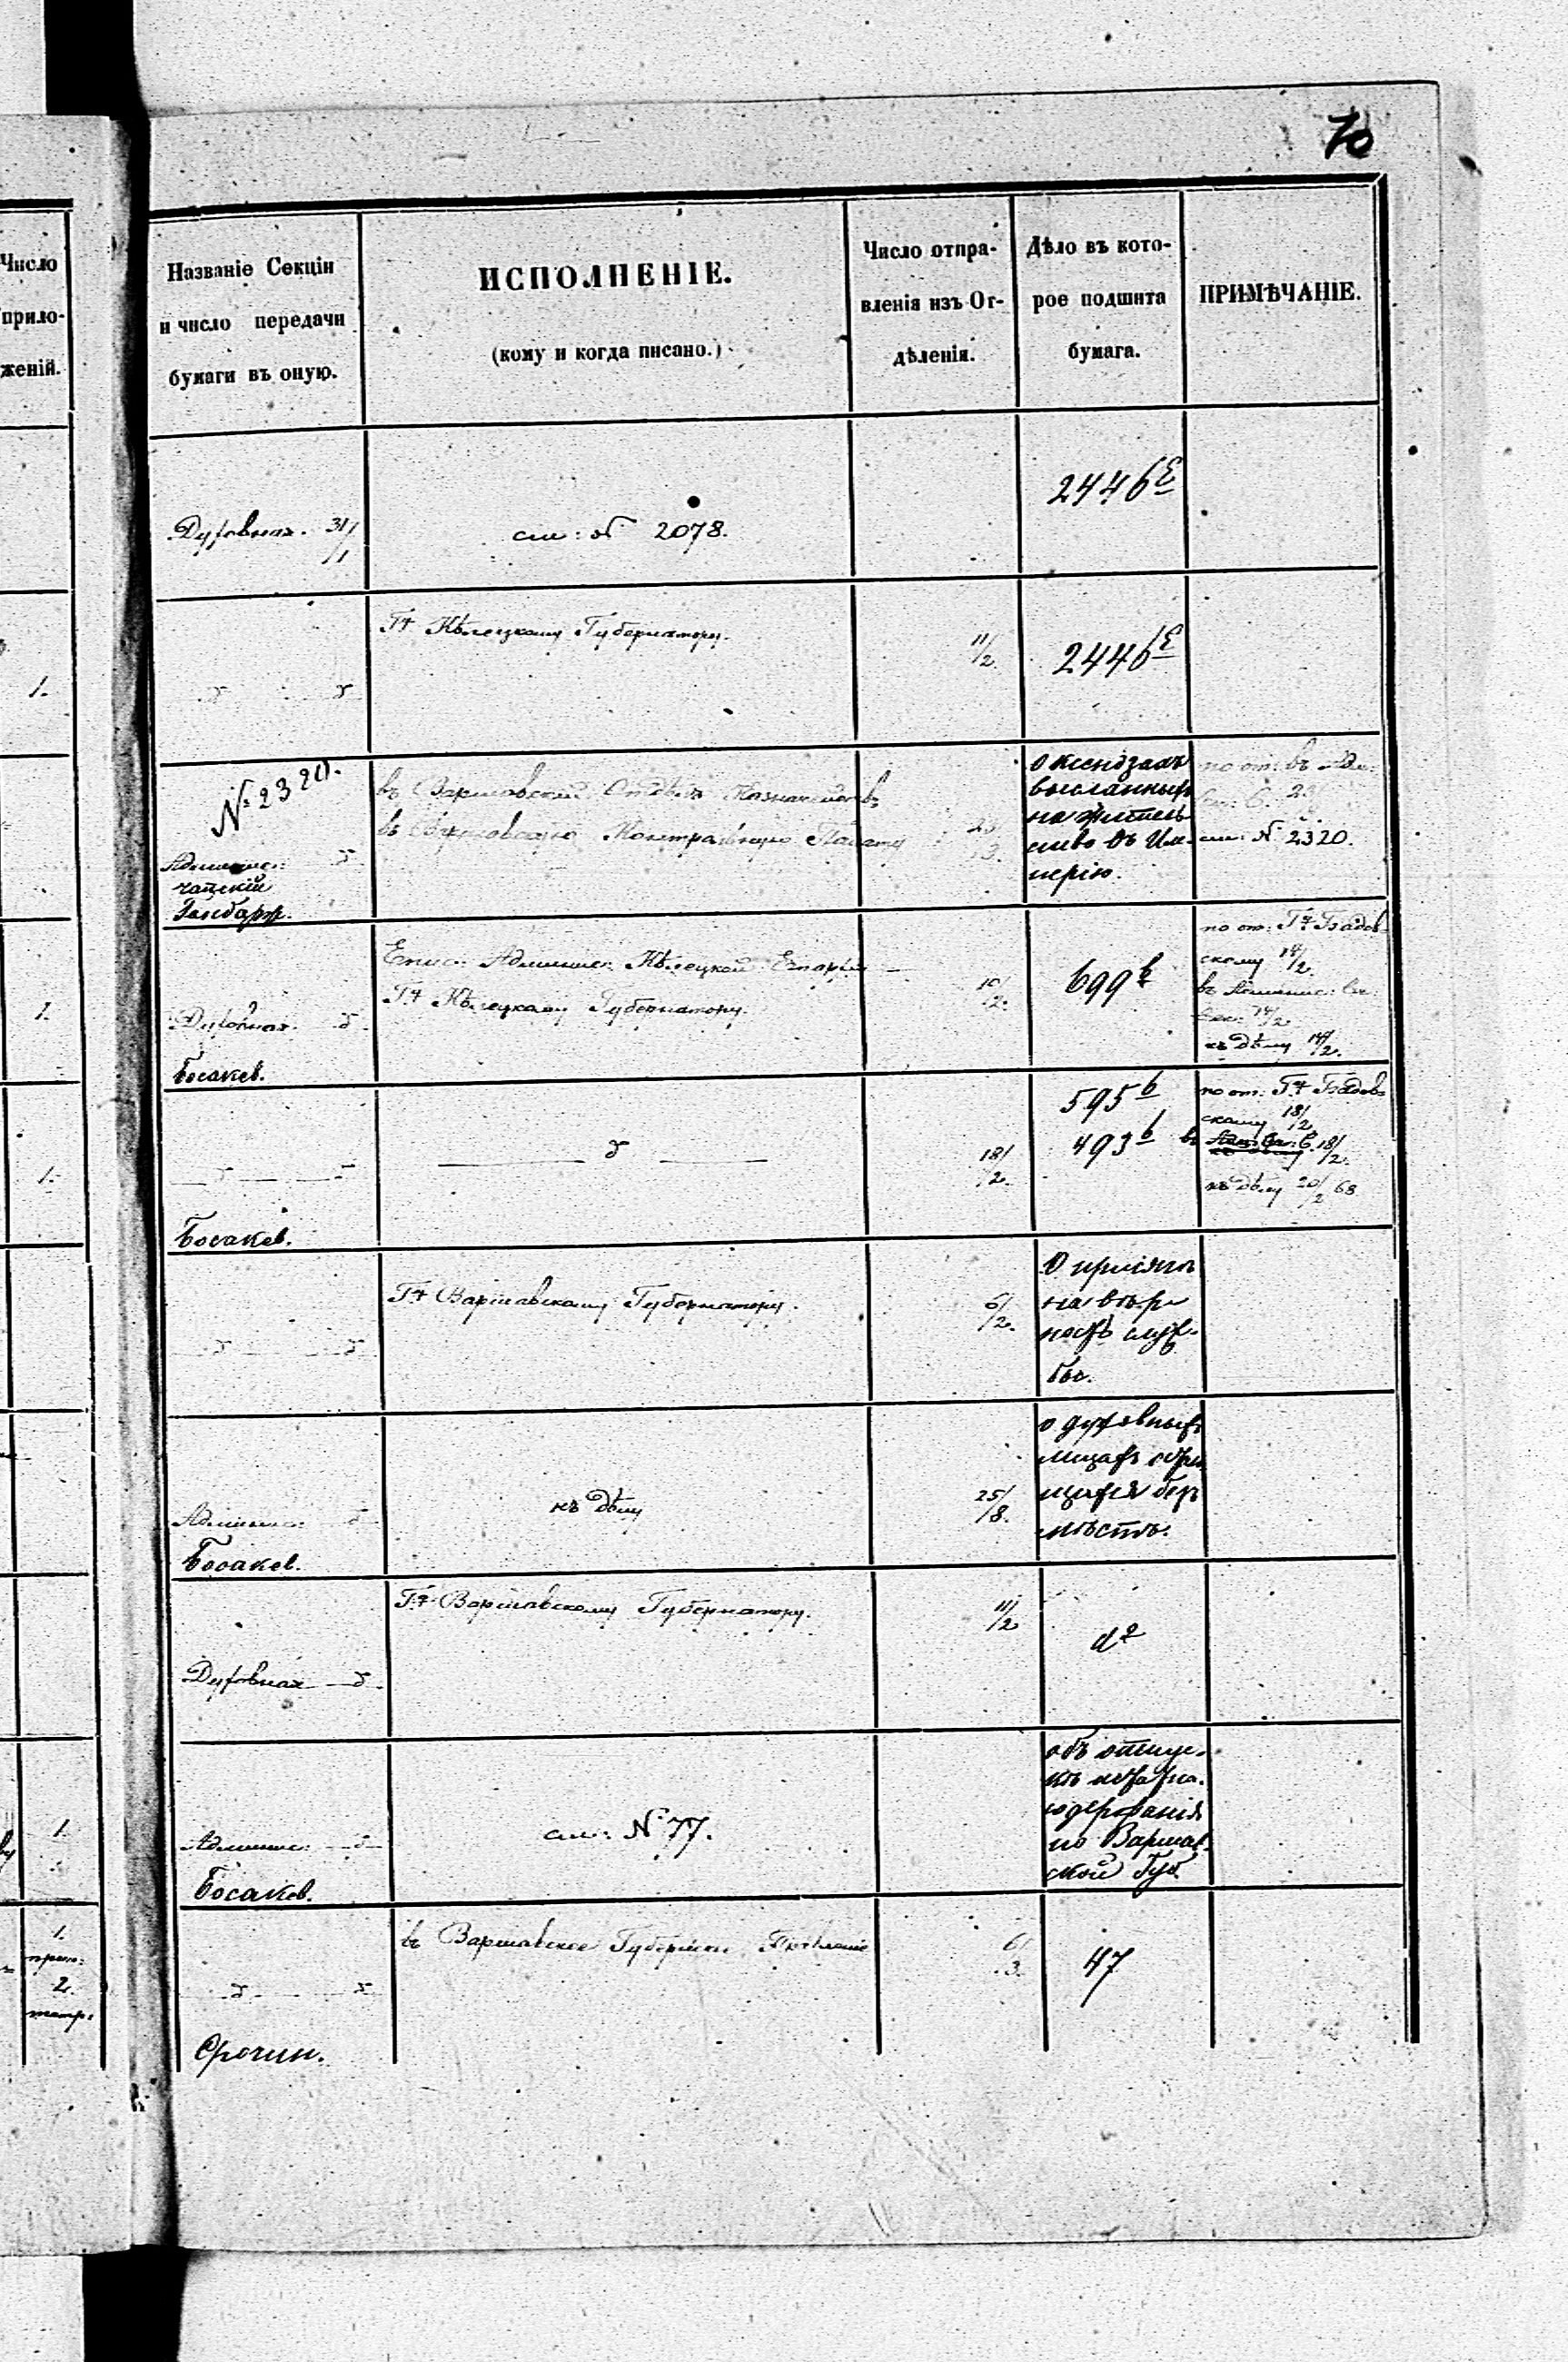 70
Число
прило-
женій.
Названіе Секціи
и число передачи
бумаги въ оную.
ИСПОЛНЕНІЕ.
(кому и когда писано.)
Число отпра-
вленія изъ От-
дѣленія.
Дѣло въ кото-
рое подшита
бумага.
ПРИМѢЧАНІЕ.
Духовная. 31/1
см: N 2078.
2446 Е
1.
Гну Кѣлецкому Губернатору.
11/2.
2446 Е
№ 2320.
Админис:
Гансбарж.
въ Варшавскій Отдѣлъ Казначействъ
въ Варшавскую Контрольную Палату
23/3.
о ксендзахъ
высланныхъ
на житель
ство въ Им-
перію.
по от: въ
см: N 2320.
1.
Духовная.
Босакев.
Епис: Админис: Кѣлецкой Епархіи
Гну Кѣлецкому Губернатору.
10/2.
699 b
по от: Гну Гзадов
скому 14/2.
въ Админис:
Сек: 14/2
къ дѣлу 14/2.
1.
Босакев.
18/2.
595 b
493 b
по от: Гну Гзадов
скому 18/2
18/2.
къ дѣлу 20/2 68
Гну Варшавскому Губернатору.
6/2.
О присягѣ
на вѣр
ность служ-
бы.
Админис:
Босакев.
къ дѣлу
25/8.
о духовныхъ
лицахъ
щихся безъ
мѣстъ.
Духовная
Гну Варшавскому Губернатору.
11/2
do
1.
Админис:
Босаков.
см: N 77.
объ отпус-
кѣ
содержанія
по Варшав-
ской Губ.
1.
2.
Срочин.
въ Варшавское Губернск: Правленіе
6/3.
47